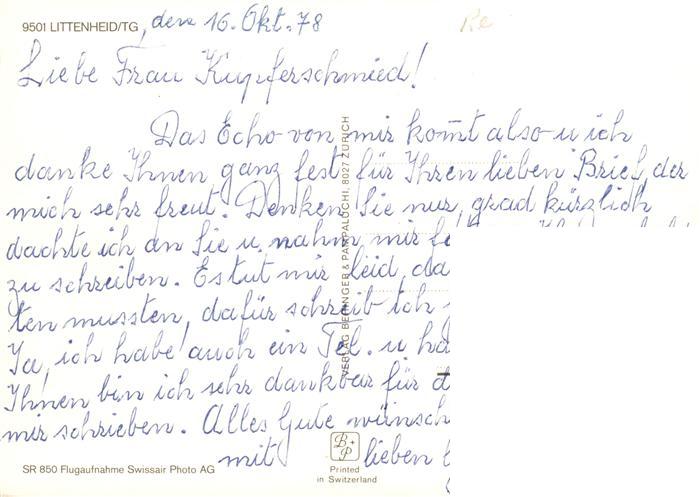 9501 LITTENHEID/TG, den 16. Okt. 78
Re
Liebe Frau Kupferschmied!
Das Echo von mir kom̄t also u ich
danke Ihnen ganz fest für Ihren lieben Brief, der
mich sehr freut. Denken Sie nur, grad kürzlich
dachte ich an Sie u. nahm mir
zu schreiben. Es tut mir leid, da
ten mussten, dafür schreib ich
Ja, ich habe auch ein Tel. u ha
Ihnen bin ich sehr dankbar für d
mir schrieben. Alles Gute wünsch
mit lieben
VERLAG BERINGER & PAMPALUCHI, 8027 ZÜRICH
B+P
SR 850 Flugaufnahme Swissair Photo AG
Printed
in Switzerland